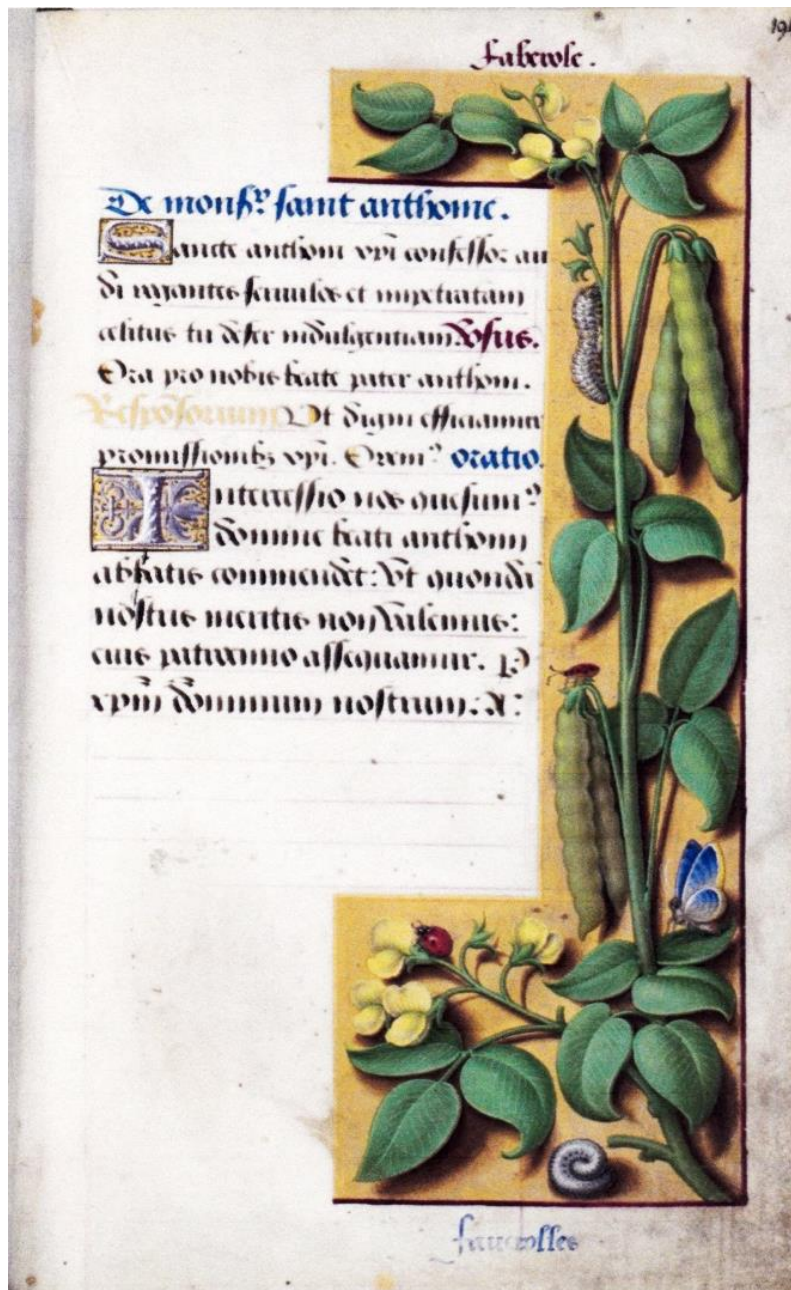 191
faberole.
De monsr saint anthoine.
Sancte anthoni xpi confessor au
di rogantes seruulos et impetratam
celitus tu defer indulgentiam. Vsus.
Ora pro nobis beate pater anthoni.
Responsorium Vt digni efficiamur
promissionib9 xpi. Orem9 oratio.
Intercessio nos quesum9
domine beati anthonii
abbatis commendet: Vt quod
nostris meritis non Valemus:
eius patrocinio assequamur. P
xpm dominum nostrum. A:
faucrolles